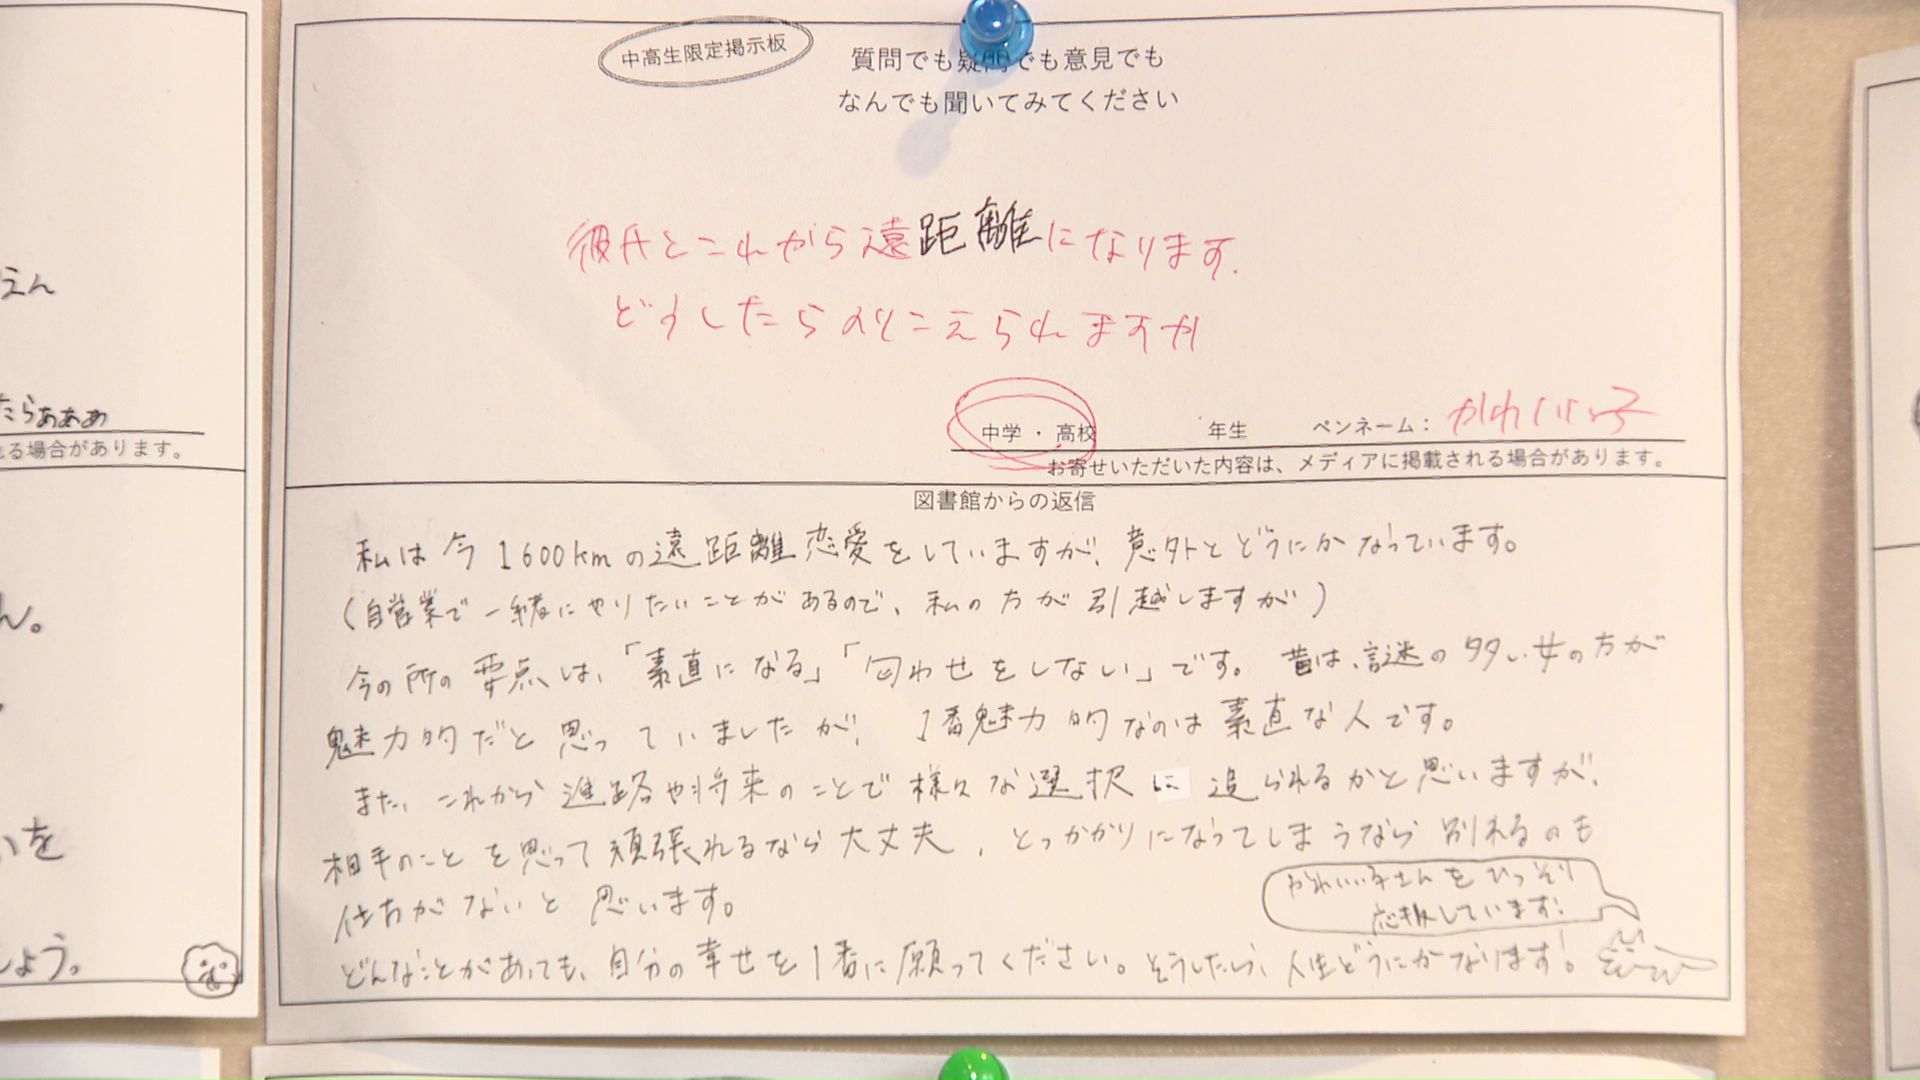 中高生限定掲示板
質問でも疑問でも意見でも
なんでも聞いてみてください
彼氏とこれから遠距離になります.
どうしたらのりこえられますか
中学・高校 年生 ペンネーム： かわいい子
お寄せいただいた内容は、メディアに掲載される場合があります。
図書館からの返信
私は今1600kmの遠距離恋愛をしていますが、意外とどうにかなっています。
(自営業で一緒にやりたいことがあるので、私の方が引越しますが)
今の所の要点は、「素直になる」「匂わせをしない」です。昔は、謎の多い女の方が
魅力的だと思っていましたが、1番魅力的なのは素直な人です。
また、これから進路や将来のことで様々な選択に迫られるかと思いますが、
相手のことを思って頑張れるなら大丈夫、とっかかりになってしまうなら別れるのも
仕方がないと思います。
かわいい子さんをひっそり
応援しています!
どんなことがあっても、自分の幸せを1番に願ってください。そうしたら、人生どうにかなります!
えん
たらぁぁぁ
る場合があります。
ん。
いを
しょう。